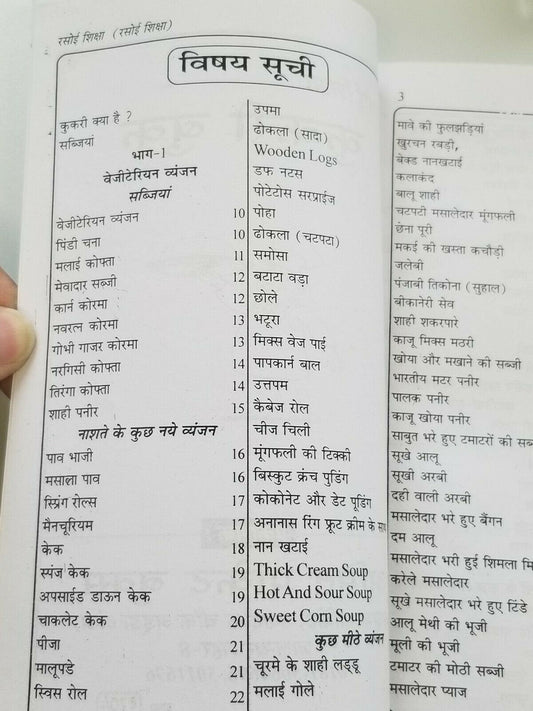 रसोई शिक्षा (रसोई शिक्षा)
विषय सूची
कुकरी क्या है ?
सब्जियां
भाग-1
वेजीटेरियन व्यंजन
सब्जियां
वेजीटेरियन व्यंजन 10
पिंडी चना 10
मलाई कोफ्ता 11
मेवादार सब्जी 12
कार्न कोरमा 12
नवरत्न कोरमा 13
गोभी गाजर कोरमा 13
नरगिसी कोफ्ता 14
तिरंगा कोफ्ता 14
शाही पनीर 15
नाशते के कुछ नये व्यंजन
पाव भाजी 16
मसाला पाव 16
स्प्रिंग रोल्स 17
मैनचूरियम 17
केक 18
स्पंज केक 19
अपसाईड डाऊन केक 19
चाकलेट केक 20
पीजा 21
मालूपडे 21
स्विस रोल 22
उपमा
ढोकला (सादा)
Wooden Logs
डफ नटस
पोटेटोस सरप्राईज
पोहा
ढोकला (चटपटा)
समोसा
बटाटा वड़ा
छोले
भटूरा
मिक्स वेज पाई
पापकार्न बाल
उत्तपम
कैबेज रोल
चीज चिली
मूंगफली की टिक्की
बिस्कुट क्रंच पुडिंग
कोकोनेट और डेट पूडिंग
अनानास रिंग फ्रूट क्रीम के साथ
नान खटाई
Thick Cream Soup
Hot And Sour Soup
Sweet Corn Soup
कुछ मीठे व्यंजन
चूरमे के शाही लड्डू
मलाई गोले
3
मावे की फुलझड़ियां
खुरचन रबड़ी,
बेक्ड नानखटाई
कलाकंद
बालू शाही
चटपटी मसालेदार मूंगफली
छेना पूरी
मकई की खस्ता कचौड़ी
जलेबी
पंजाबी तिकोना (सुहाल)
बीकानेरी सेव
शाही शकरपारे
काजू मिक्स मठरी
खोया और मखाने की सब्जी
भारतीय मटर पनीर
पालक पनीर
काजू खोया पनीर
साबुत भरे हुए टमाटरों की सब्
सूखे आलू
सूखी अरबी
दही वाली अरबी
मसालेदार भरे हुए बैंगन
दम आलू
मसालेदार भरी हुई शिमला मि
करेले मसालेदार
सूखे मसालेदार भरे हुए टिंडे
आलू मेथी की भूजी
मूली की भूजी
टमाटर की मोठी सब्जी
मसालेदार प्याज